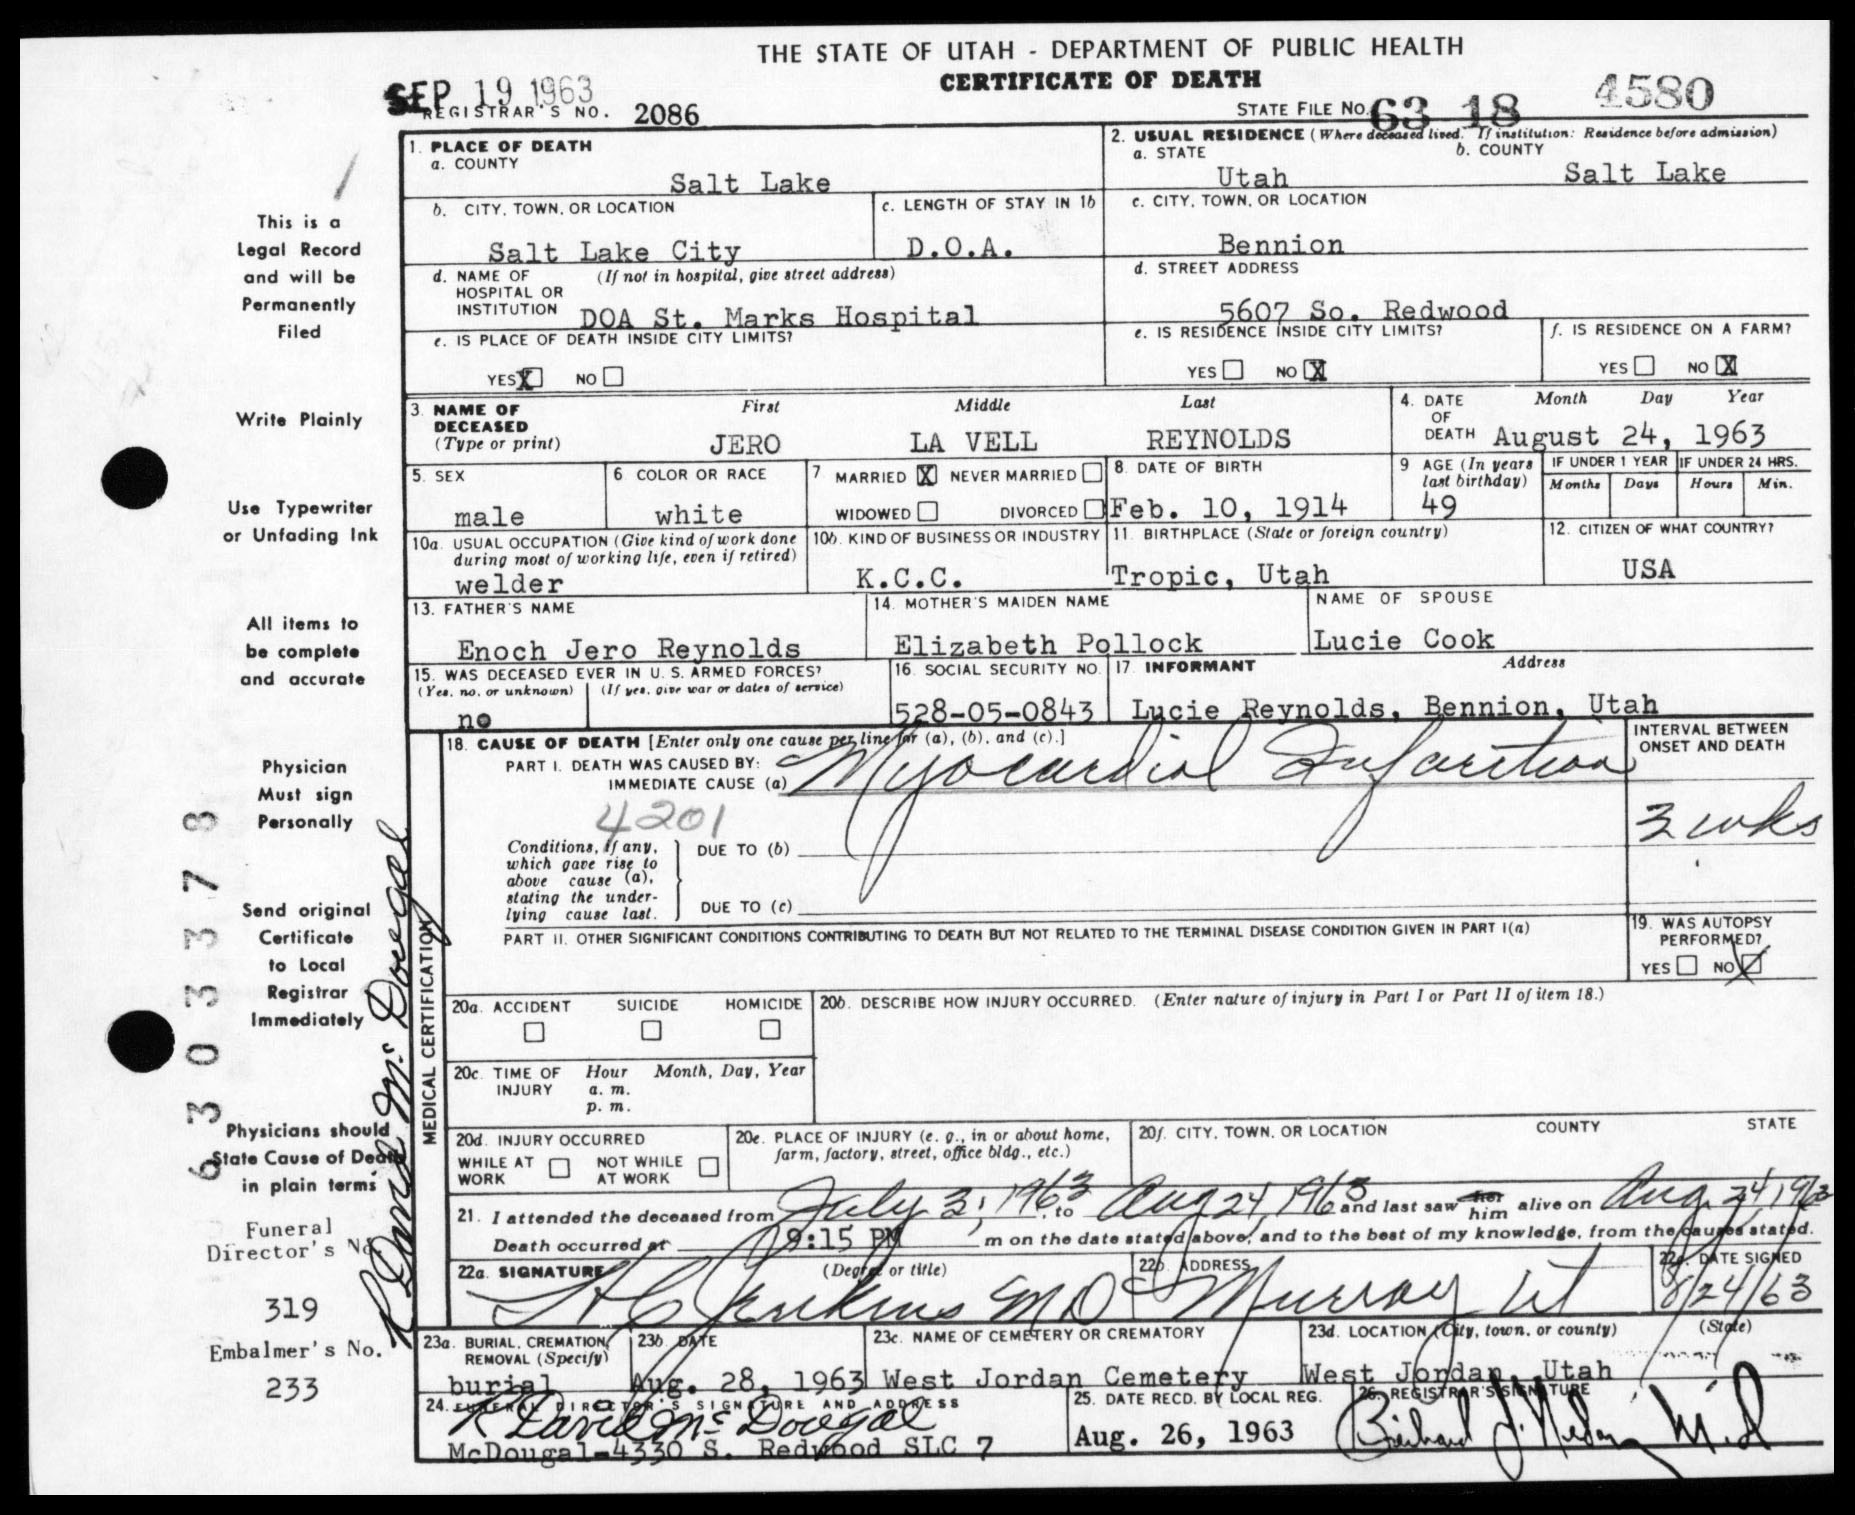 THE STATE OF UTAH - DEPARTMENT OF PUBLIC HEALTH
CERTIFICATE OF DEATH
SEP 19 1963
REGISTRAR'S NO. 2086
STATE FILE NO. 63 18 4580
1. PLACE OF DEATH
a. COUNTY
Salt Lake
2. USUAL RESIDENCE (Where deceased lived. If institution: Residence before admission)
a. STATE
Utah
b. COUNTY
Salt Lake
b. CITY, TOWN, OR LOCATION
Salt Lake City
c. LENGTH OF STAY IN 1b
D.O.A.
c. CITY, TOWN, OR LOCATION
Bennion
d. NAME OF HOSPITAL OR INSTITUTION (If not in hospital, give street address)
DOA St. Marks Hospital
d. STREET ADDRESS
5607 So. Redwood
e. IS PLACE OF DEATH INSIDE CITY LIMITS?
YES X NO
e. IS RESIDENCE INSIDE CITY LIMITS?
YES NO X
f. IS RESIDENCE ON A FARM?
YES NO X
3. NAME OF DECEASED (Type or print)
First Middle Last
JERO LA VELL REYNOLDS
4. DATE OF DEATH
Month Day Year
August 24, 1963
5. SEX
male
6 COLOR OR RACE
white
7 MARRIED X NEVER MARRIED
WIDOWED DIVORCED
8. DATE OF BIRTH
Feb. 10, 1914
9 AGE (In years last birthday)
49
IF UNDER 1 YEAR IF UNDER 24 HRS.
Months Days Hours Min.
10a. USUAL OCCUPATION (Give kind of work done during most of working life, even if retired)
welder
10b. KIND OF BUSINESS OR INDUSTRY
K.C.C.
11. BIRTHPLACE (State or foreign country)
Tropic, Utah
12. CITIZEN OF WHAT COUNTRY?
USA
13. FATHER'S NAME
Enoch Jero Reynolds
14. MOTHER'S MAIDEN NAME
Elizabeth Pollock
NAME OF SPOUSE
Lucie Cook
15. WAS DECEASED EVER IN U. S. ARMED FORCES?
(Yes, no, or unknown) (If yes, give war or dates of service)
no
16. SOCIAL SECURITY NO.
528-05-0843
17. INFORMANT Address
Lucie Reynolds, Bennion, Utah
18. CAUSE OF DEATH [Enter only one cause per line for (a), (b), and (c).]
PART I. DEATH WAS CAUSED BY:
IMMEDIATE CAUSE (a) Myocardial Infarction
INTERVAL BETWEEN ONSET AND DEATH
3 wks
4201
Conditions, if any, which gave rise to above cause (a), stating the underlying cause last.
DUE TO (b)
DUE TO (c)
PART II. OTHER SIGNIFICANT CONDITIONS CONTRIBUTING TO DEATH BUT NOT RELATED TO THE TERMINAL DISEASE CONDITION GIVEN IN PART I(a)
19. WAS AUTOPSY PERFORMED?
YES NO X
20a. ACCIDENT SUICIDE HOMICIDE
20b. DESCRIBE HOW INJURY OCCURRED. (Enter nature of injury in Part I or Part II of item 18.)
20c. TIME OF INJURY Hour Month, Day, Year
a. m.
p. m.
20d. INJURY OCCURRED
WHILE AT WORK NOT WHILE AT WORK
20e. PLACE OF INJURY (e. g., in or about home, farm, factory, street, office bldg., etc.)
20f. CITY, TOWN, OR LOCATION COUNTY STATE
21. I attended the deceased from July 3, 1963, to Aug 24, 1963 and last saw her him alive on Aug 24, 1963
Death occurred at 9:15 PM m on the date stated above, and to the best of my knowledge, from the causes stated.
22a. SIGNATURE (Degree or title)
Jenkins MD
22b. ADDRESS
Murray Ut
22c. DATE SIGNED
8/24/63
23a. BURIAL, CREMATION, REMOVAL (Specify)
burial
23b. DATE
Aug. 28, 1963
23c. NAME OF CEMETERY OR CREMATORY
West Jordan Cemetery
23d. LOCATION (City, town, or county) (State)
West Jordan, Utah
24. FUNERAL DIRECTOR'S SIGNATURE AND ADDRESS
R David McDougal
McDougal-4330 S. Redwood SLC 7
25. DATE RECD. BY LOCAL REG.
Aug. 26, 1963
26. REGISTRAR'S SIGNATURE
MEDICAL CERTIFICATION
This is a
Legal Record
and will be
Permanently
Filed
Write Plainly
Use Typewriter
or Unfading Ink
All items to
be complete
and accurate
Physician
Must sign
Personally
Send original
Certificate
to Local
Registrar
Immediately
Physicians should
State Cause of Death
in plain terms
Funeral
Director's No.
319
Embalmer's No.
233
R David McDougal
6303378